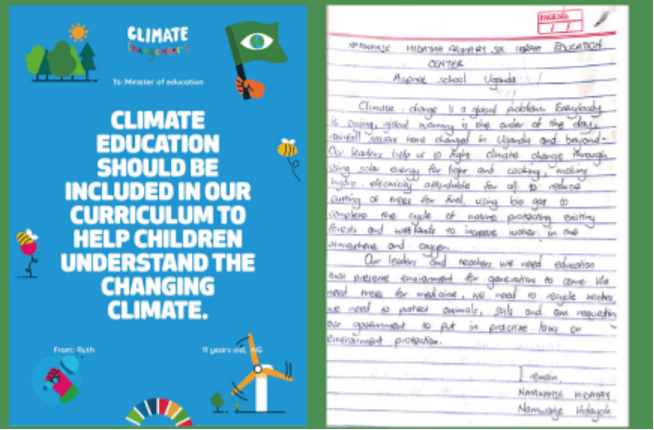 CLIMATE
Changemakers
To: Minister of education
CLIMATE
EDUCATION
SHOULD BE
INCLUDED IN OUR
CURRICULUM TO
HELP CHILDREN
UNDERSTAND THE
CHANGING
CLIMATE.
From: Ruth
11 years old, NG
HIDAYAH PRIMARY SCH EDUCATION
CENTER
school Uganda
Climate change is a global problem. Everybody
is crying, global warming is the order of the day,
rainfall have changed in Uganda and beyond.
Our leaders help us to fight climate change through
using solar energy for light and cooking, making
hydro-electricity affordable for all to reduce
cutting of trees for fuel, using bio gas to
complete the cycle of nature protecting existing
forests and wetlands to increase water in the
atmosphere and oxygen.
Our leaders and teachers we need education
that preserve environment for generation to come We
need trees for medicine, we need to recycle
we need to protect animals, soils and am requesting
our government to put in practise laws on
environment protection.
I remain,